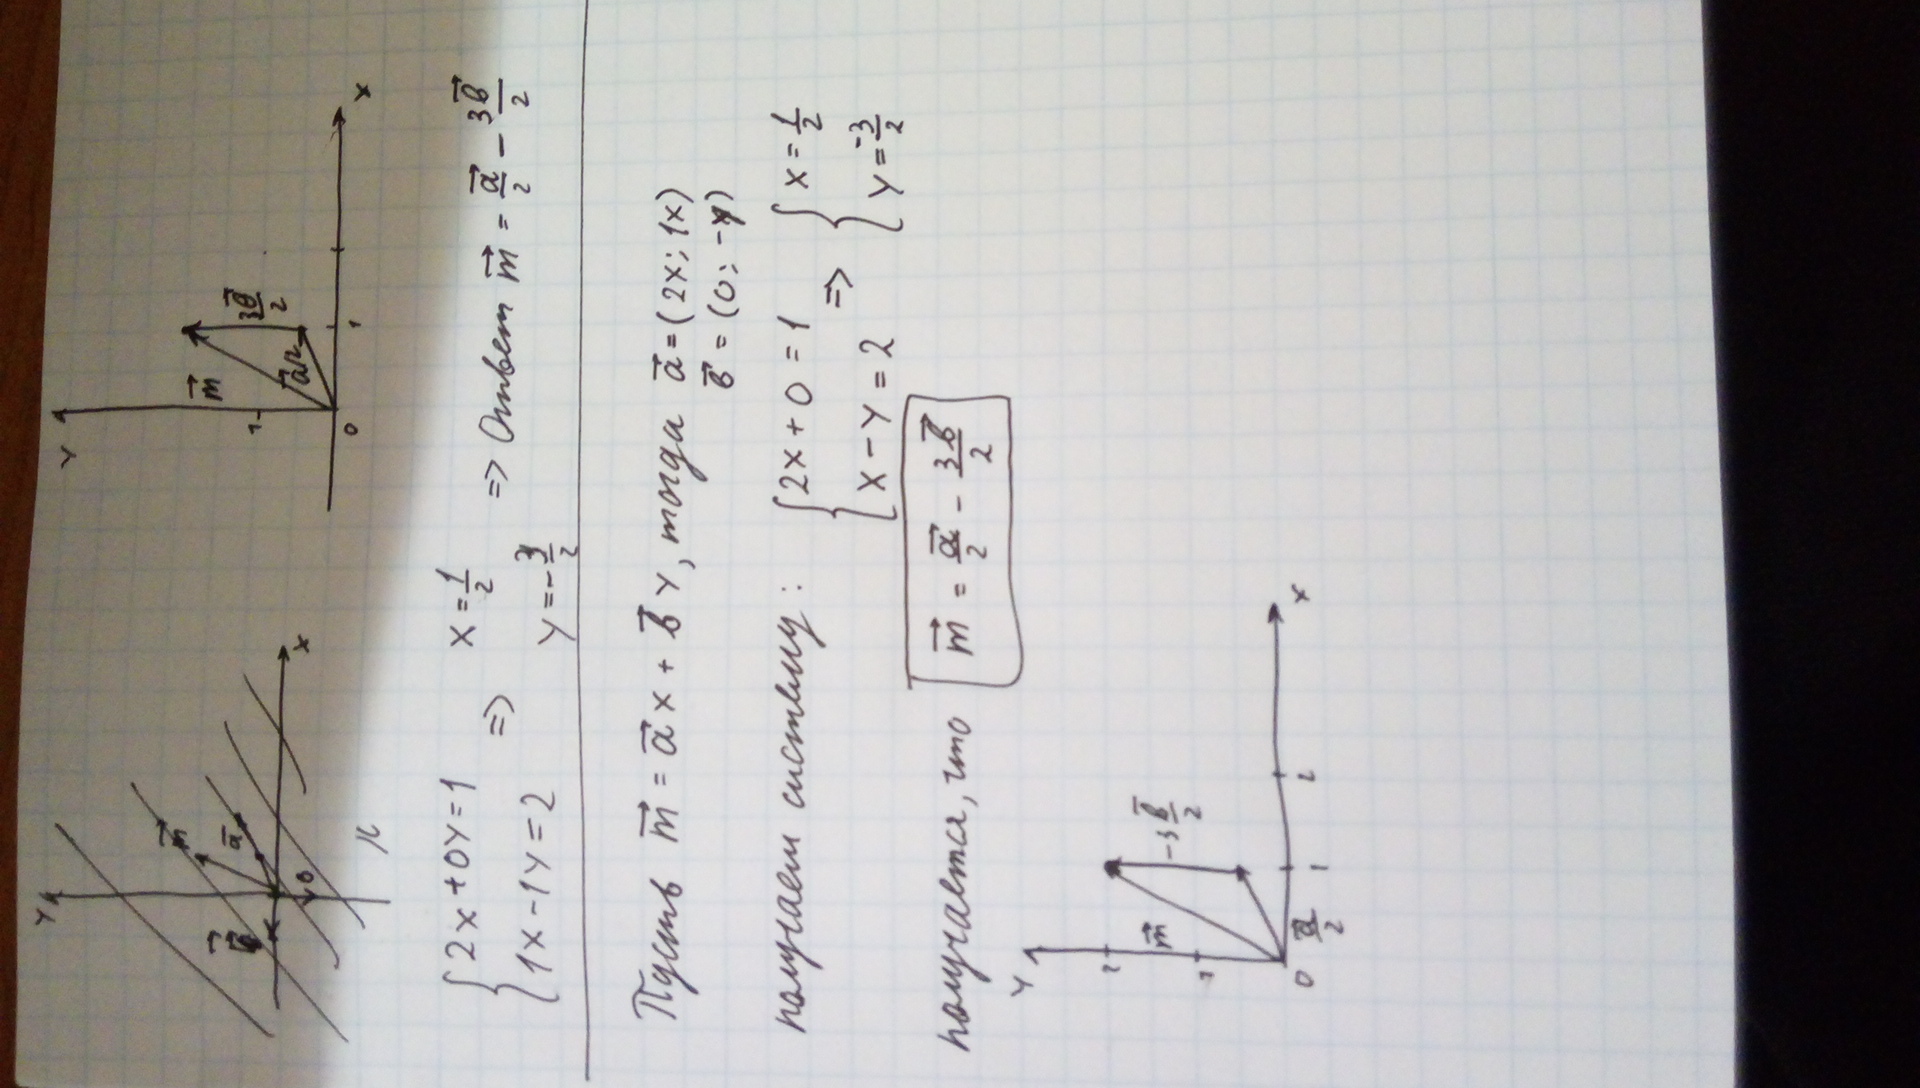 Y
m⃗
a⃗
b⃗
0
X
Y
1
m⃗
a⃗/2
3b⃗/2
0
1
X
{2x+0y=1
{1x-1y=2
=>
x=1/2
y=-3/2
=> Ответ m⃗ = a⃗/2 - 3b⃗/2
Пусть m⃗ = a⃗x + b⃗y, тогда a⃗=(2x; 1x)
b⃗ = (0; -y)
получаем систему: {2x+0=1
{x-y=2
=>
{x=1/2
{y=-3/2
получается, что m⃗ = a⃗/2 - 3b⃗/2
Y
2
1
m⃗
-3b⃗/2
0
a⃗/2
1
2
X